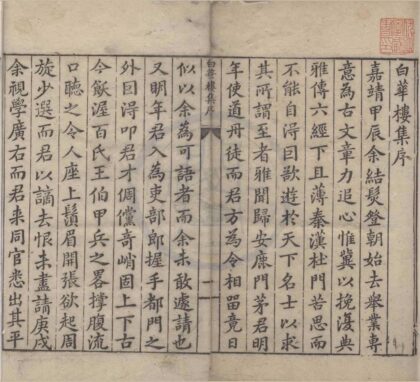 白華樓集序
嘉靖甲辰余結髮登朝始去舉業專
意為古文章力追心惟冀以挽復典
雅傳六經下且薄秦漢杜門苦思而
不能自得囙歎遊於天下名士以求
其所謂至者雅聞歸安鹿門茅君明
年使道丹徒而君方為令相畱竟日
白華樓集序
一
似以余為可語者而余未敢遽請也
又明年君入為吏部郎握手都門之
外囙得叩君才倜儻奇峭固上下古
今飫渥百氏王伯甲兵之畧撑腹流
口聽之令人座上鬚眉開張欲起周
旋少選而君以謫去恨未盡請庚戌
余視學廣右而君來同官悉出其平